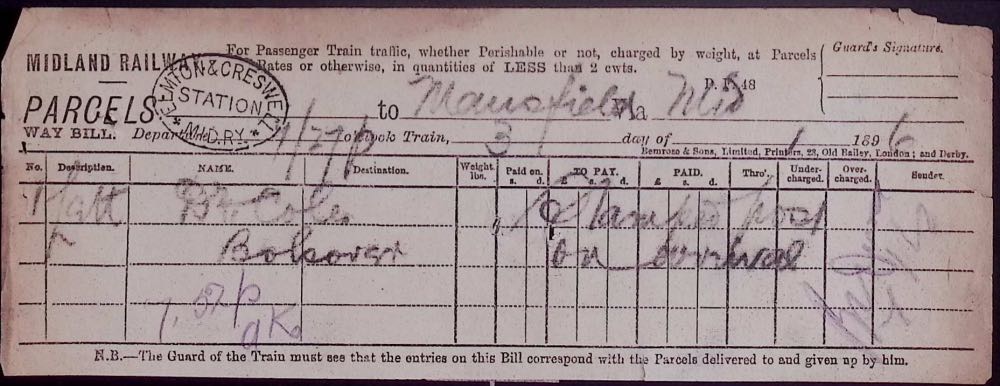 For Passenger Train traffic, whether Perishable or not, charged by weight, at Parcels
Rates or otherwise, in quantities of LESS than 2 cwts.
Guard's Signature.
MIDLAND RAILWAY
ELMTON & CRESWELL
STATION
M.D.RY
P.F. 48
PARCELS to Mansfield via Mid
WAY BILL. Departure 1/27 p o'clock Train, 3 day of 1 1896
Bemrose & Sons, Limited, Printers, 23, Old Bailey, London; and Derby.
No. Description. NAME. Destination. Weight lbs. Paid on. s. d. TO PAY. £ s. d. PAID. £ s. d. Thro'. Under-charged. Over-charged. Sender.
1 Coles Stamped
Bolsover on arrival
1,57 p
N.B.—The Guard of the Train must see that the entries on this Bill correspond with the Parcels delivered to and given up by him.